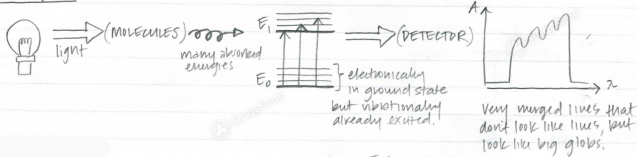 light
(MOLECULES)
many absorbed
energies
E1
E0
electronically
in ground state
but vibrationally
already excited.
(DETECTOR)
A
λ
Very merged lines that
don't look like lines, but
look like big globs.